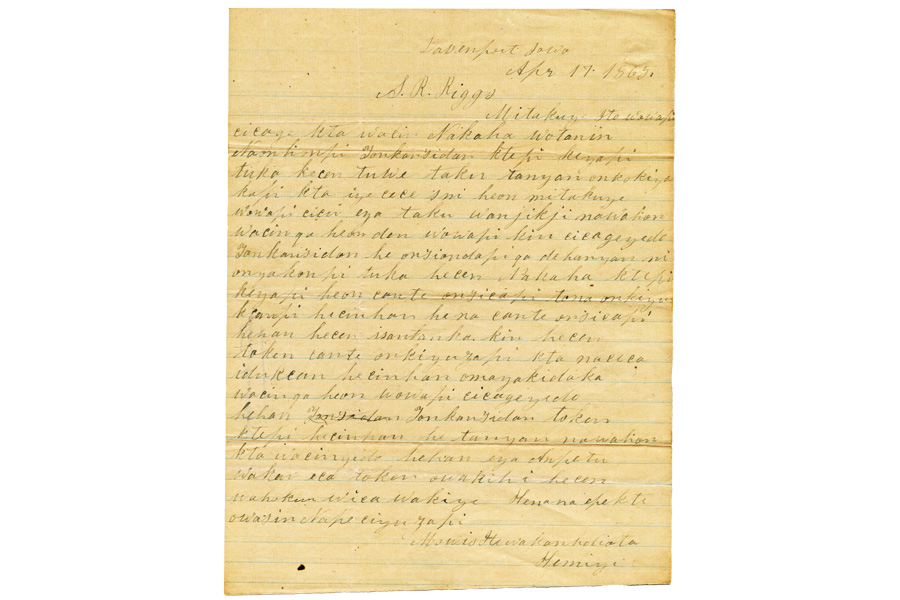 Davenport Iowa
Apr 17. 1865.
S. R. Riggs
Mitakuye Ito wowapi
cicage kta watin Nakaha wotanin
Tonkansidan ktepi keyapi
tuka hecen tuwe taku tanyan onkokiya
kapi kta iyececesni heon mitakuye
wowapi cicu eya taku wanjikji nawahon
wacinga heon den wowapi kin cicageyedo
Tonkansidon he onsiondapi qa dehanyan ni
onyakonpi tuka hecen Nakaha ktepi
keyapi heon cante onsicapi tona onkiyu
hecinhan hena cante onsicapi
hehan hecen isantanka kin hecen
token cante onkiyuzapi kta naceca
idukcan hecinhan omayakidaka
wacinga heon wowapi cicageyedo
hehan Tonsidan Tonkansidan token
ktepi hecinhan he tanyan nawahon
kta wacinyedo hehan eya Anpetu
wakan eca token owakihi hecen
wahokun wica wakiye Hena nape kte
owasin Nape ciyuzapi
Mowis
Hemiye